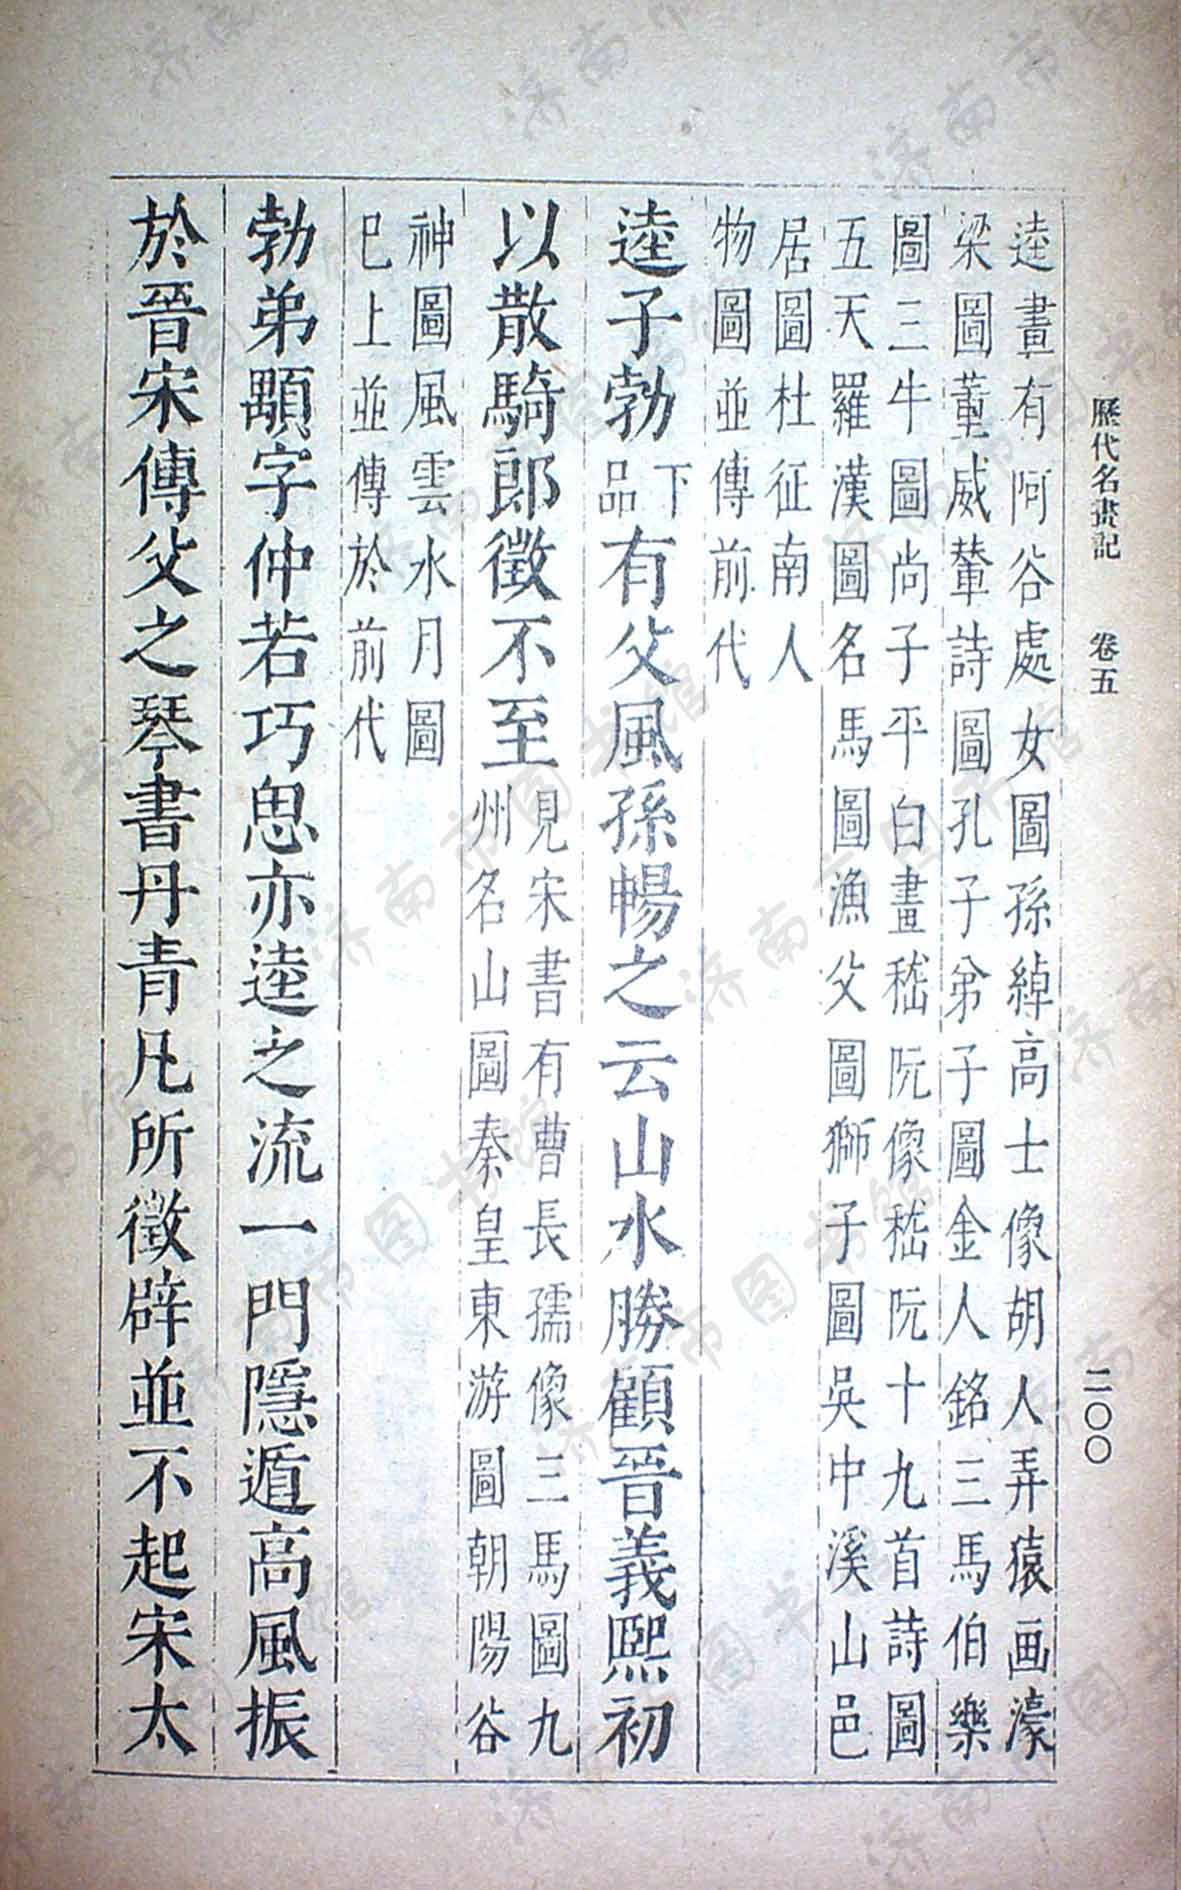 歷代名畫記　卷五　二〇〇
逵畫有阿谷處女圖孫綽高士像胡人弄猿画濠
梁圖董威輦詩圖孔子弟子圖金人銘三馬伯樂
圖三牛圖尚子平白畫嵇阮像嵇阮十九首詩圖
五天羅漢圖名馬圖漁父圖獅子圖吳中溪山邑
居圖杜征南人
物圖並傳前代
逵子勃下品有父風孫暢之云山水勝顧晉義熙初
以散騎郎徵不至見宋書有曹長孺像三馬圖九
州名山圖秦皇東游圖朝陽谷
神圖風雲水月圖
巳上並傳於前代
勃弟顒字仲若巧思亦逵之流一門隱遁高風振
於晉宋傳父之琴書丹青凡所徵辟並不起宋太
济南市图书馆